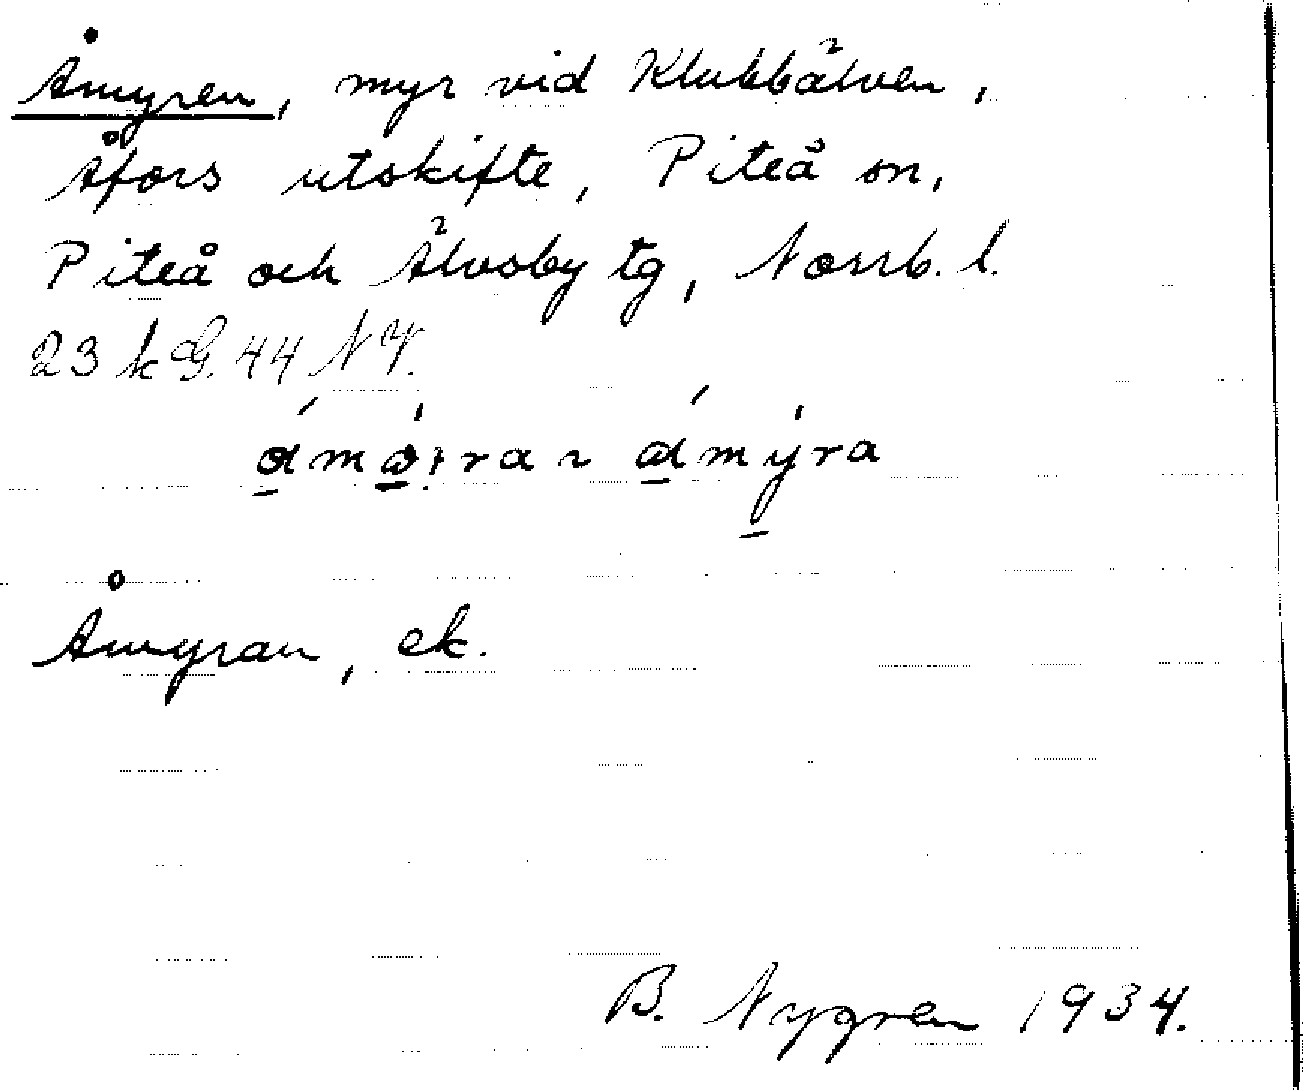 Åmyren, myr vid Klubbälven,
Åfors utskifte, Piteå sn,
Piteå och Älvsby tg, Norrb. l.
23 k G. 44 NY.
Åmyran, ek.
B. Nygren 1934.